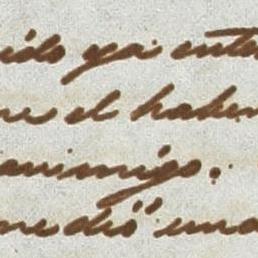 ido ya ente
ne el haber
enimigo.
me dió una